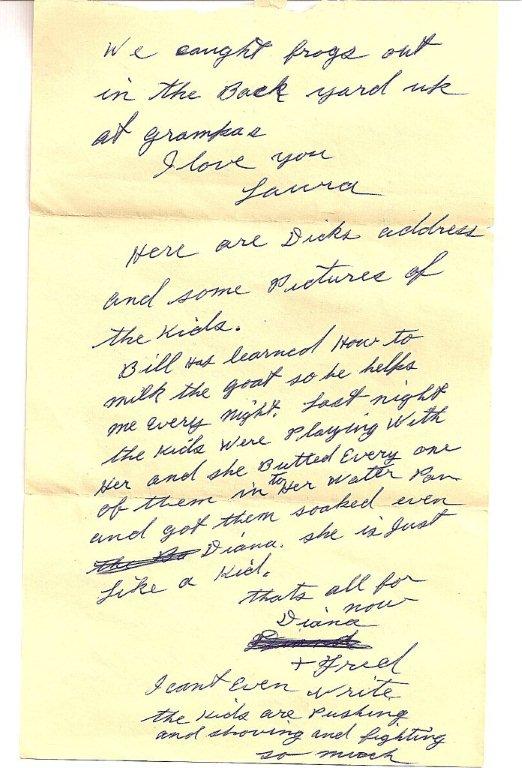 We caught frogs out
in the Back yard uk
at grampas
I love you
Laura
Here are Dicks address
and some Pictures of
the Kids.
Bill Has learned How to
milk the goat so he helps
me every night. Last night
the kids were Playing With
Her and she Butted Every one
of them in to Her Water Pan
and got them soaked even
Diana. she is Just
Like a Kid.
thats all for
now
Diana
+ Fred
I cant Even write
the kids are Pushing
and shoving and fighting
so much